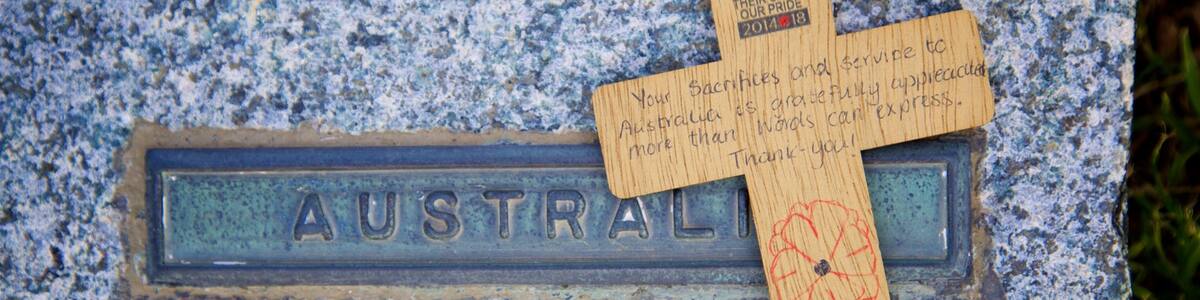 OUR PRIDE
2014 18
Your Sacrifices and Service to
Australia is gratefully appreciated
more than words can express.
Thank-you!
AUSTRALI